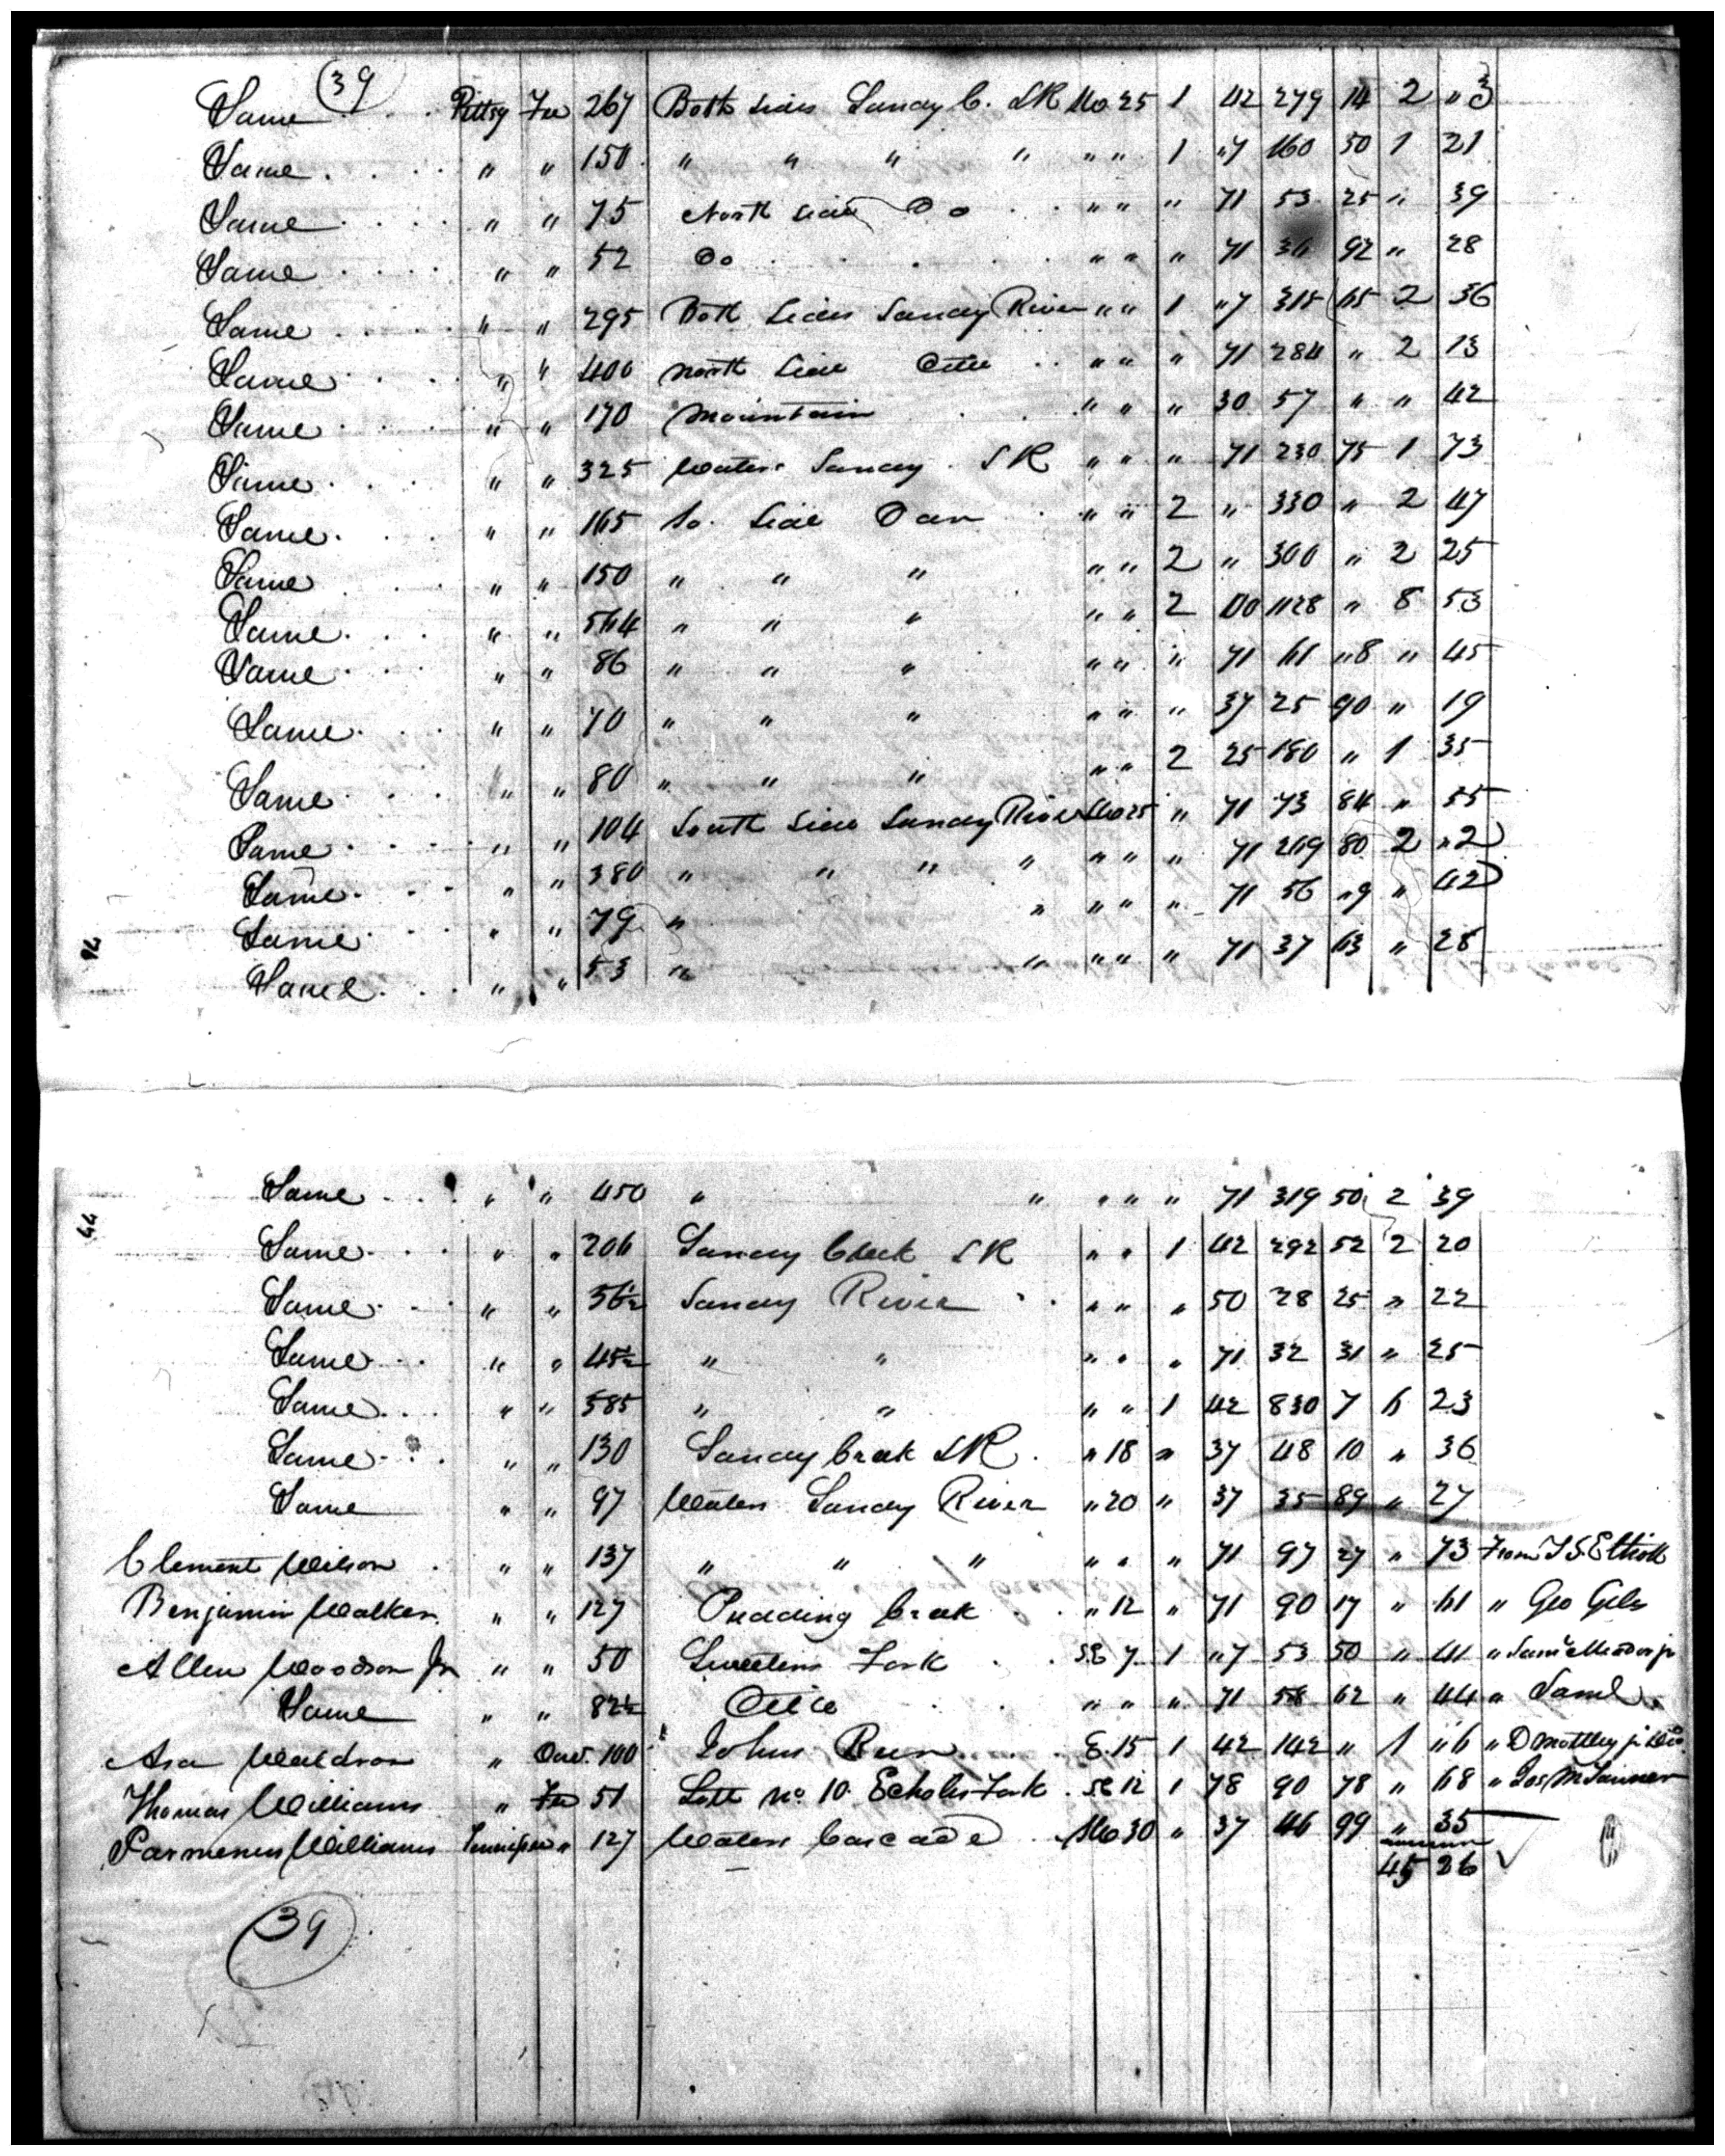 39
Same . . . Pittsy Fee 267 Both sides Sandy C. SR Wo 25 1 42 279 14 2 " 3
Same . . . " " 150 " " " " " " 1 " 7 160 50 1 21
Same . . . " " 75 North side Do . . " " " 71 53 25 " 39
Same . . . " " 52 Do . . . . " " " 71 36 92 " 28
Same . . . " " 295 Both sides Sandy River " " 1 " 7 315 65 2 36
Same . . . " " 400 North side Ditto . . " " " 71 284 " 2 13
Same . . . " " 170 Mountain . . " " " 30 57 " " 42
Same . . . " " 325 Waters Sandy SR " " " 71 230 75 1 73
Same . . . " " 165 So. side Dan . " " 2 " 330 " 2 47
Same . . . " " 150 " " " " " 2 " 300 " 2 25
Same . . . " " 564 " " " " " 2 00 1128 " 8 53
Same . . . " " 86 " " " " " " 71 61 " 8 " 45
Same . . . " " 70 " " " " " " 37 25 90 " 19
Same . . . " " 80 " " " " " 2 25 180 " 1 35
Same . . . " " 104 South side Sandy River Wo 25 " 71 73 84 " 55
Same . . . " " 380 " " " " " " " 71 269 80 2 " 2
Same . . . " " 79 " " " " " 71 56 " 9 " 42
Same . . . " " 53 " " " " " 71 37 63 " 28
Same . . . " " 450 " " " " " 71 319 50 2 39
44
Same . . . " " 206 Sandy Creek SR " " 1 42 292 52 2 20
Same . . . " " 56½ Sandy River . . " " " 50 28 25 " 22
Same . . . " " 45½ " " " " " 71 32 31 " 25
Same . . . " " 585 " " " " 1 42 830 7 6 23
Same . . . " " 130 Sandy Creek SR . " 18 " 37 48 10 " 36
Same " " 97 Waters Sandy River " 20 " 37 35 89 " 27
Clement Wilson . " " 137 " " " " " " 71 97 27 " 73 From T S. Elliott
Benjamin Walker " " 127 Pudding Creek . . " 12 " 71 90 17 " 61 " Geo
Allen Woodson Jr " " 50 Sweetens Fork . . SE 7 1 " 7 53 50 " 41 " Saml Meador jr
Same " " 82½ Ditto . . " " " 71 58 62 " 44 " Saml
Asa Waldron " 100 Johns Run . . E. 15 1 42 142 " 1 " 6 " D Mottley jr
Thomas Williams " Fee 51 Lott No 10 Echols Fork . SE 12 1 78 90 78 " 68 " Jos M Tanner
Parmenus Williams Tennessee " 127 Waters Cascade . Wo 30 " 37 46 99 " 35
45 26
39